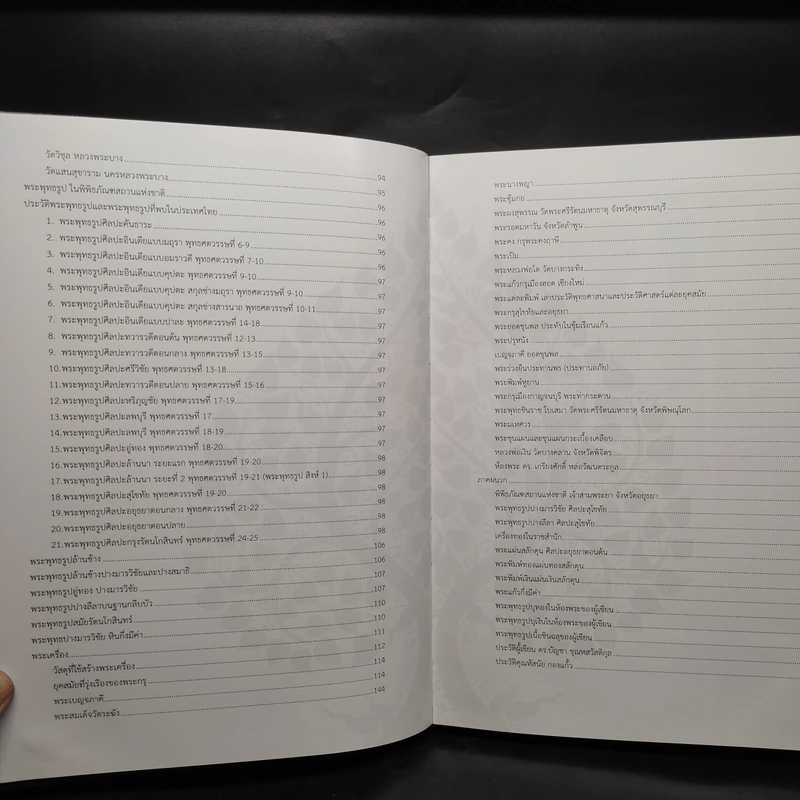 วัดวิชุล หลวงพระบาง
วัดแสนสุขาราม นครหลวงพระบาง 94
พระพุทธรูป ในพิพิธภัณฑสถานแห่งชาติ 95
ประวัติพระพุทธรูปและพระพุทธรูปที่พบในประเทศไทย 96
1. พระพุทธรูปศิลปะคันธาระ 96
2. พระพุทธรูปศิลปะอินเดียแบบมถุรา พุทธศตวรรษที่ 6-9 96
3. พระพุทธรูปศิลปะอินเดียแบบอมราวดี พุทธศตวรรษที่ 7-10 96
4. พระพุทธรูปศิลปะอินเดียแบบคุปตะ พุทธศตวรรษที่ 9-10 96
5. พระพุทธรูปศิลปะอินเดียแบบคุปตะ สกุลช่างมถุรา พุทธศตวรรษที่ 9-10 97
6. พระพุทธรูปศิลปะอินเดียแบบคุปตะ สกุลช่างสารนาถ พุทธศตวรรษที่ 10-11 97
7. พระพุทธรูปศิลปะอินเดียแบบปาละ พุทธศตวรรษที่ 14-18 97
8. พระพุทธรูปศิลปะทวารวดีตอนต้น พุทธศตวรรษที่ 12-13 97
9. พระพุทธรูปศิลปะทวารวดีตอนกลาง พุทธศตวรรษที่ 13-15 97
10.พระพุทธรูปศิลปะศรีวิชัย พุทธศตวรรษที่ 13-18 97
11.พระพุทธรูปศิลปะทวารวดีตอนปลาย พุทธศตวรรษที่ 15-16 97
12.พระพุทธรูปศิลปะหริภุญชัย พุทธศตวรรษที่ 17-19 97
13.พระพุทธรูปศิลปะลพบุรี พุทธศตวรรษที่ 17 97
14.พระพุทธรูปศิลปะลพบุรี พุทธศตวรรษที่ 18-19 97
15.พระพุทธรูปศิลปะอู่ทอง พุทธศตวรรษที่ 18-20 97
16.พระพุทธรูปศิลปะล้านนา ระยะแรก พุทธศตวรรษที่ 19-20 98
17.พระพุทธรูปศิลปะล้านนา ระยะที่ 2 พุทธศตวรรษที่ 19-21 (พระพุทธรูป สิงห์ 1) 98
18.พระพุทธรูปศิลปะสุโขทัย พุทธศตวรรษที่ 19-20 98
19.พระพุทธรูปศิลปะอยุธยาตอนกลาง พุทธศตวรรษที่ 21-22 98
20.พระพุทธรูปศิลปะอยุธยาตอนปลาย 98
21.พระพุทธรูปศิลปะกรุงรัตนโกสินทร์ พุทธศตวรรษที่ 24-25 98
พระพุทธรูปล้านช้าง 106
พระพุทธรูปล้านช้างปางมารวิชัยและปางสมาธิ 106
พระพุทธรูปอู่ทอง ปางมารวิชัย 107
พระพุทธรูปปางลีลาบนฐานกลีบบัว 107
พระพุทธรูปสมัยรัตนโกสินทร์ 110
พระพุทธปางมารวิชัย หินกึ่งมีค่า 110
พระเครื่อง 111
วัสดุที่ใช้สร้างพระเครื่อง 112
ยุคสมัยที่รุ่งเรืองของพระกรุ 114
พระเบญจภาคี 114
พระสมเด็จวัดระฆัง 144
พระนางพญา
พระซุ้มกอ
พระผงสุพรรณ วัดพระศรีรัตนมหาธาตุ จังหวัดสุพรรณบุรี
พระรอดมหาวัน จังหวัดลำพูน
พระคง กรุพระคงฤาษี
พระเปิม
พระหลวงพ่อโต วัดบางกระทิง
พระแก้วกรุเมืองฮอด เชียงใหม่
พระแต่ละพิมพ์ เล่าประวัติพุทธศาสนาและประวัติศาสตร์แต่ละยุคสมัย
พระกรุสุโขทัยและอยุธยา
พระยอดขุนพล ประทับในซุ้มเรือนแก้ว
พระปรุหนัง
เบญจภาคี ยอดขุนพล
พระร่วงยืนประทานพร (ประทานอภัย)
พระพิมพ์หูยาน
พระกรุเมืองกาญจนบุรี พระท่ากระดาน
พระพุทธชินราช ใบเสมา วัดพระศรีรัตนมหาธาตุ จังหวัดพิษณุโลก
พระมเหศวร
พระขุนแผนและขุนแผนกระเบื้องเคลือบ
หลวงพ่อเงิน วัดบางคลาน จังหวัดพิจิตร
ห้องพระ ดร. เกรียงศักดิ์ หล่อวัฒนตระกูล
ภาคผนวก
พิพิธภัณฑ์สถานแห่งชาติ เจ้าสามพระยา จังหวัดอยุธยา
พระพุทธรูปปางมารวิชัย ศิลปะสุโขทัย
พระพุทธรูปปางลีลา ศิลปะสุโขทัย
เครื่องทองในราชสำนัก
พระแผ่นสลักดุน ศิลปะอยุธยาตอนต้น
พระพิมพ์ทองแผ่นทองสลักดุน
พระพิมพ์เงินแผ่นเงินสลักดุน
พระแก้วกึ่งมีค่า
พระพุทธรูปบุทองในห้องพระของผู้เขียน
พระพุทธรูปบุเงินในห้องพระของผู้เขียน
พระพุทธรูปเนื้อชินฉลุของผู้เขียน
ประวัติผู้เขียน ดร.บัญชา ชุณหสวัสดิกุล
ประวัติคุณหัสนัย กองแก้ว